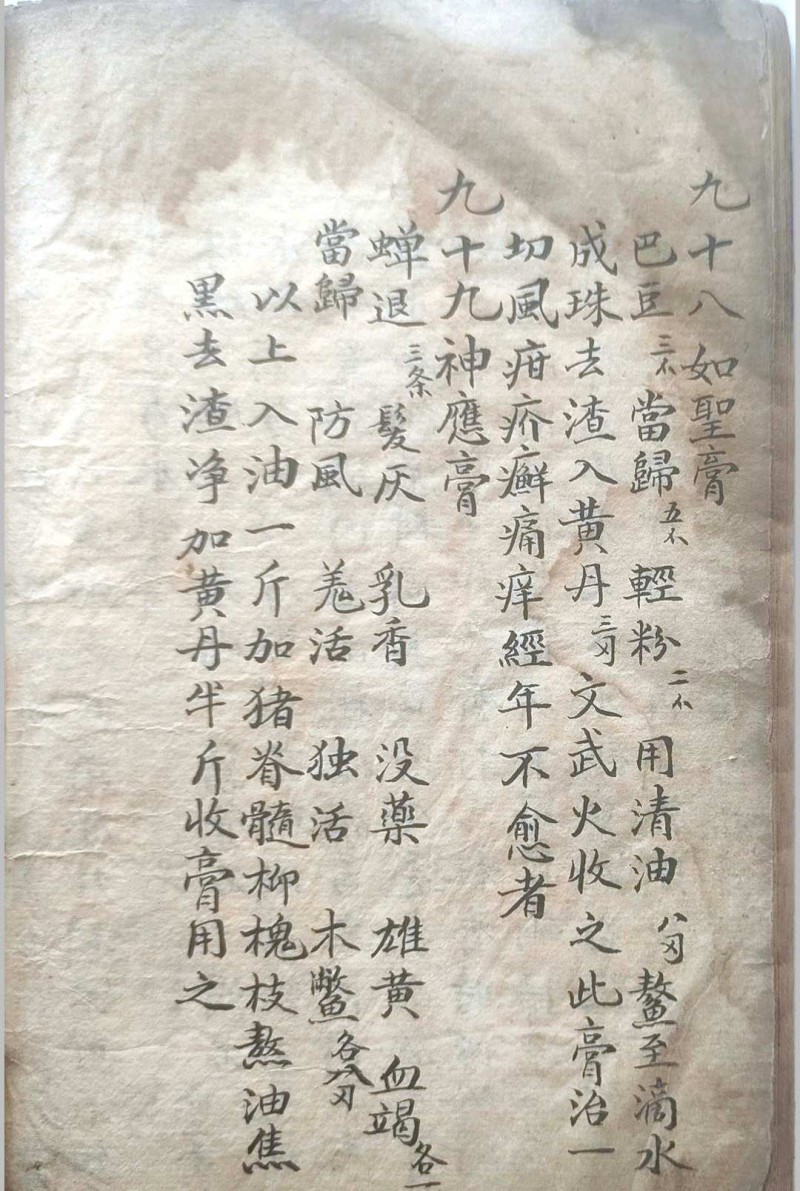 九十八 如聖膏
巴豆三不 當歸五不 輕粉二不 用清油八刄鰲至滴水
成珠去渣入黄丹三刄文武火收之此膏治一
切風疳疥癬痛痒經年不愈者
九十九神應膏
蝉退三条 髮灰 乳香 没藥 雄黄 血竭各一
當歸 防風 羗活 独活 木鱉各八刄
以上入油一斤加猪脊髓柳槐枝熬油焦
黑去渣净加黄丹半斤收膏用之